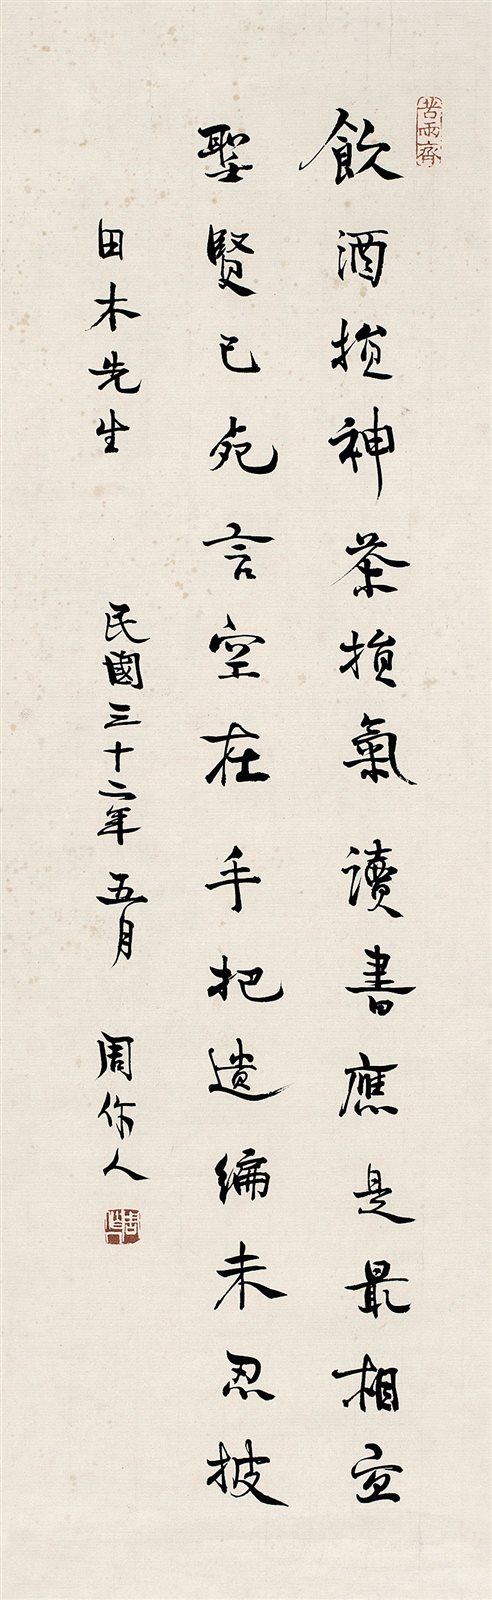 苦雨齋
飲酒損神茶損氣讀書應是最相宜
聖賢已死言空在手把遺編未忍披
田木先生 民國三十二年五月 周作人